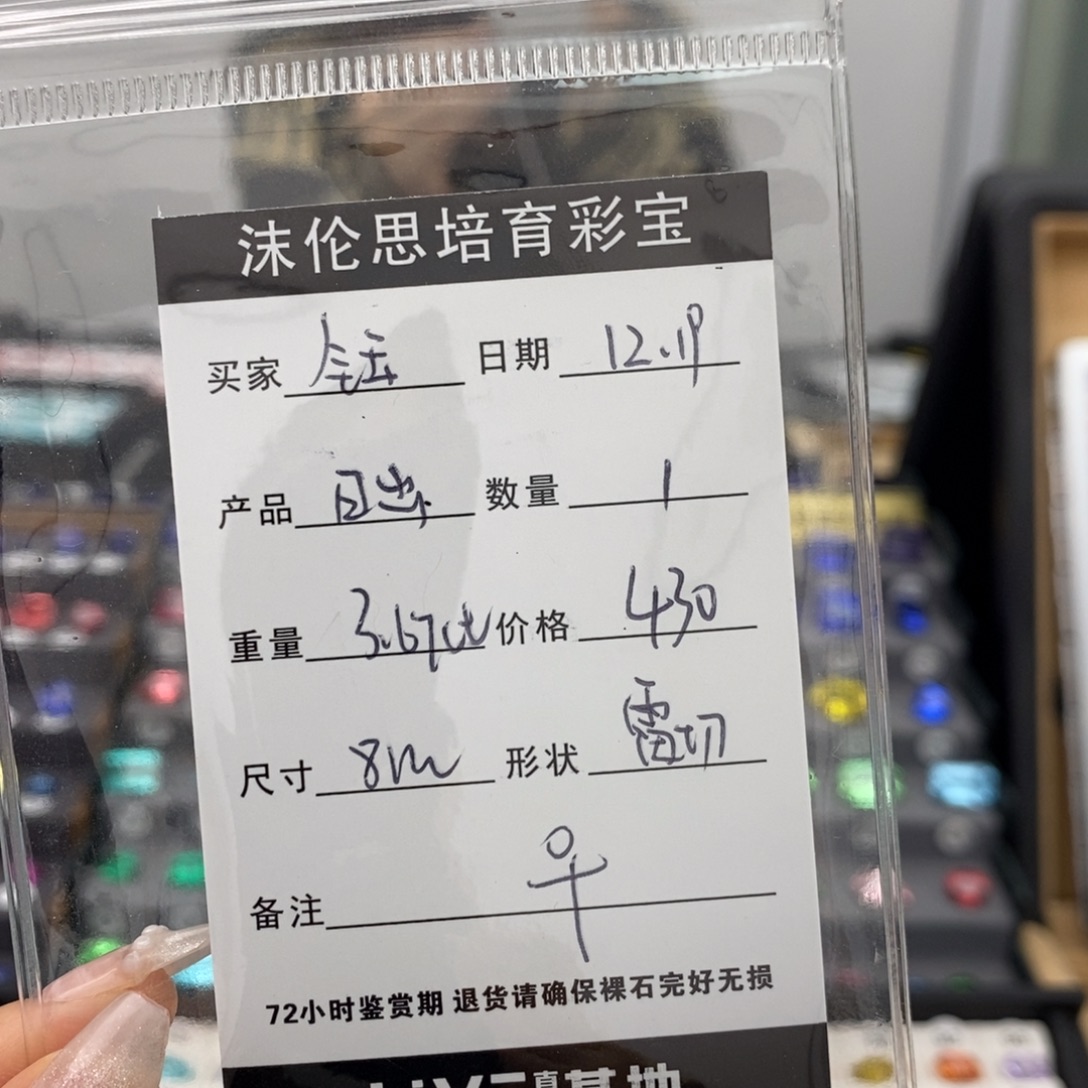 沫伦思培育彩宝
买家 日期 12.19
产品 数量 1
重量 3.67ct 价格 430
尺寸 8m 形状 雷切
备注
72小时鉴赏期 退货请确保裸石完好无损